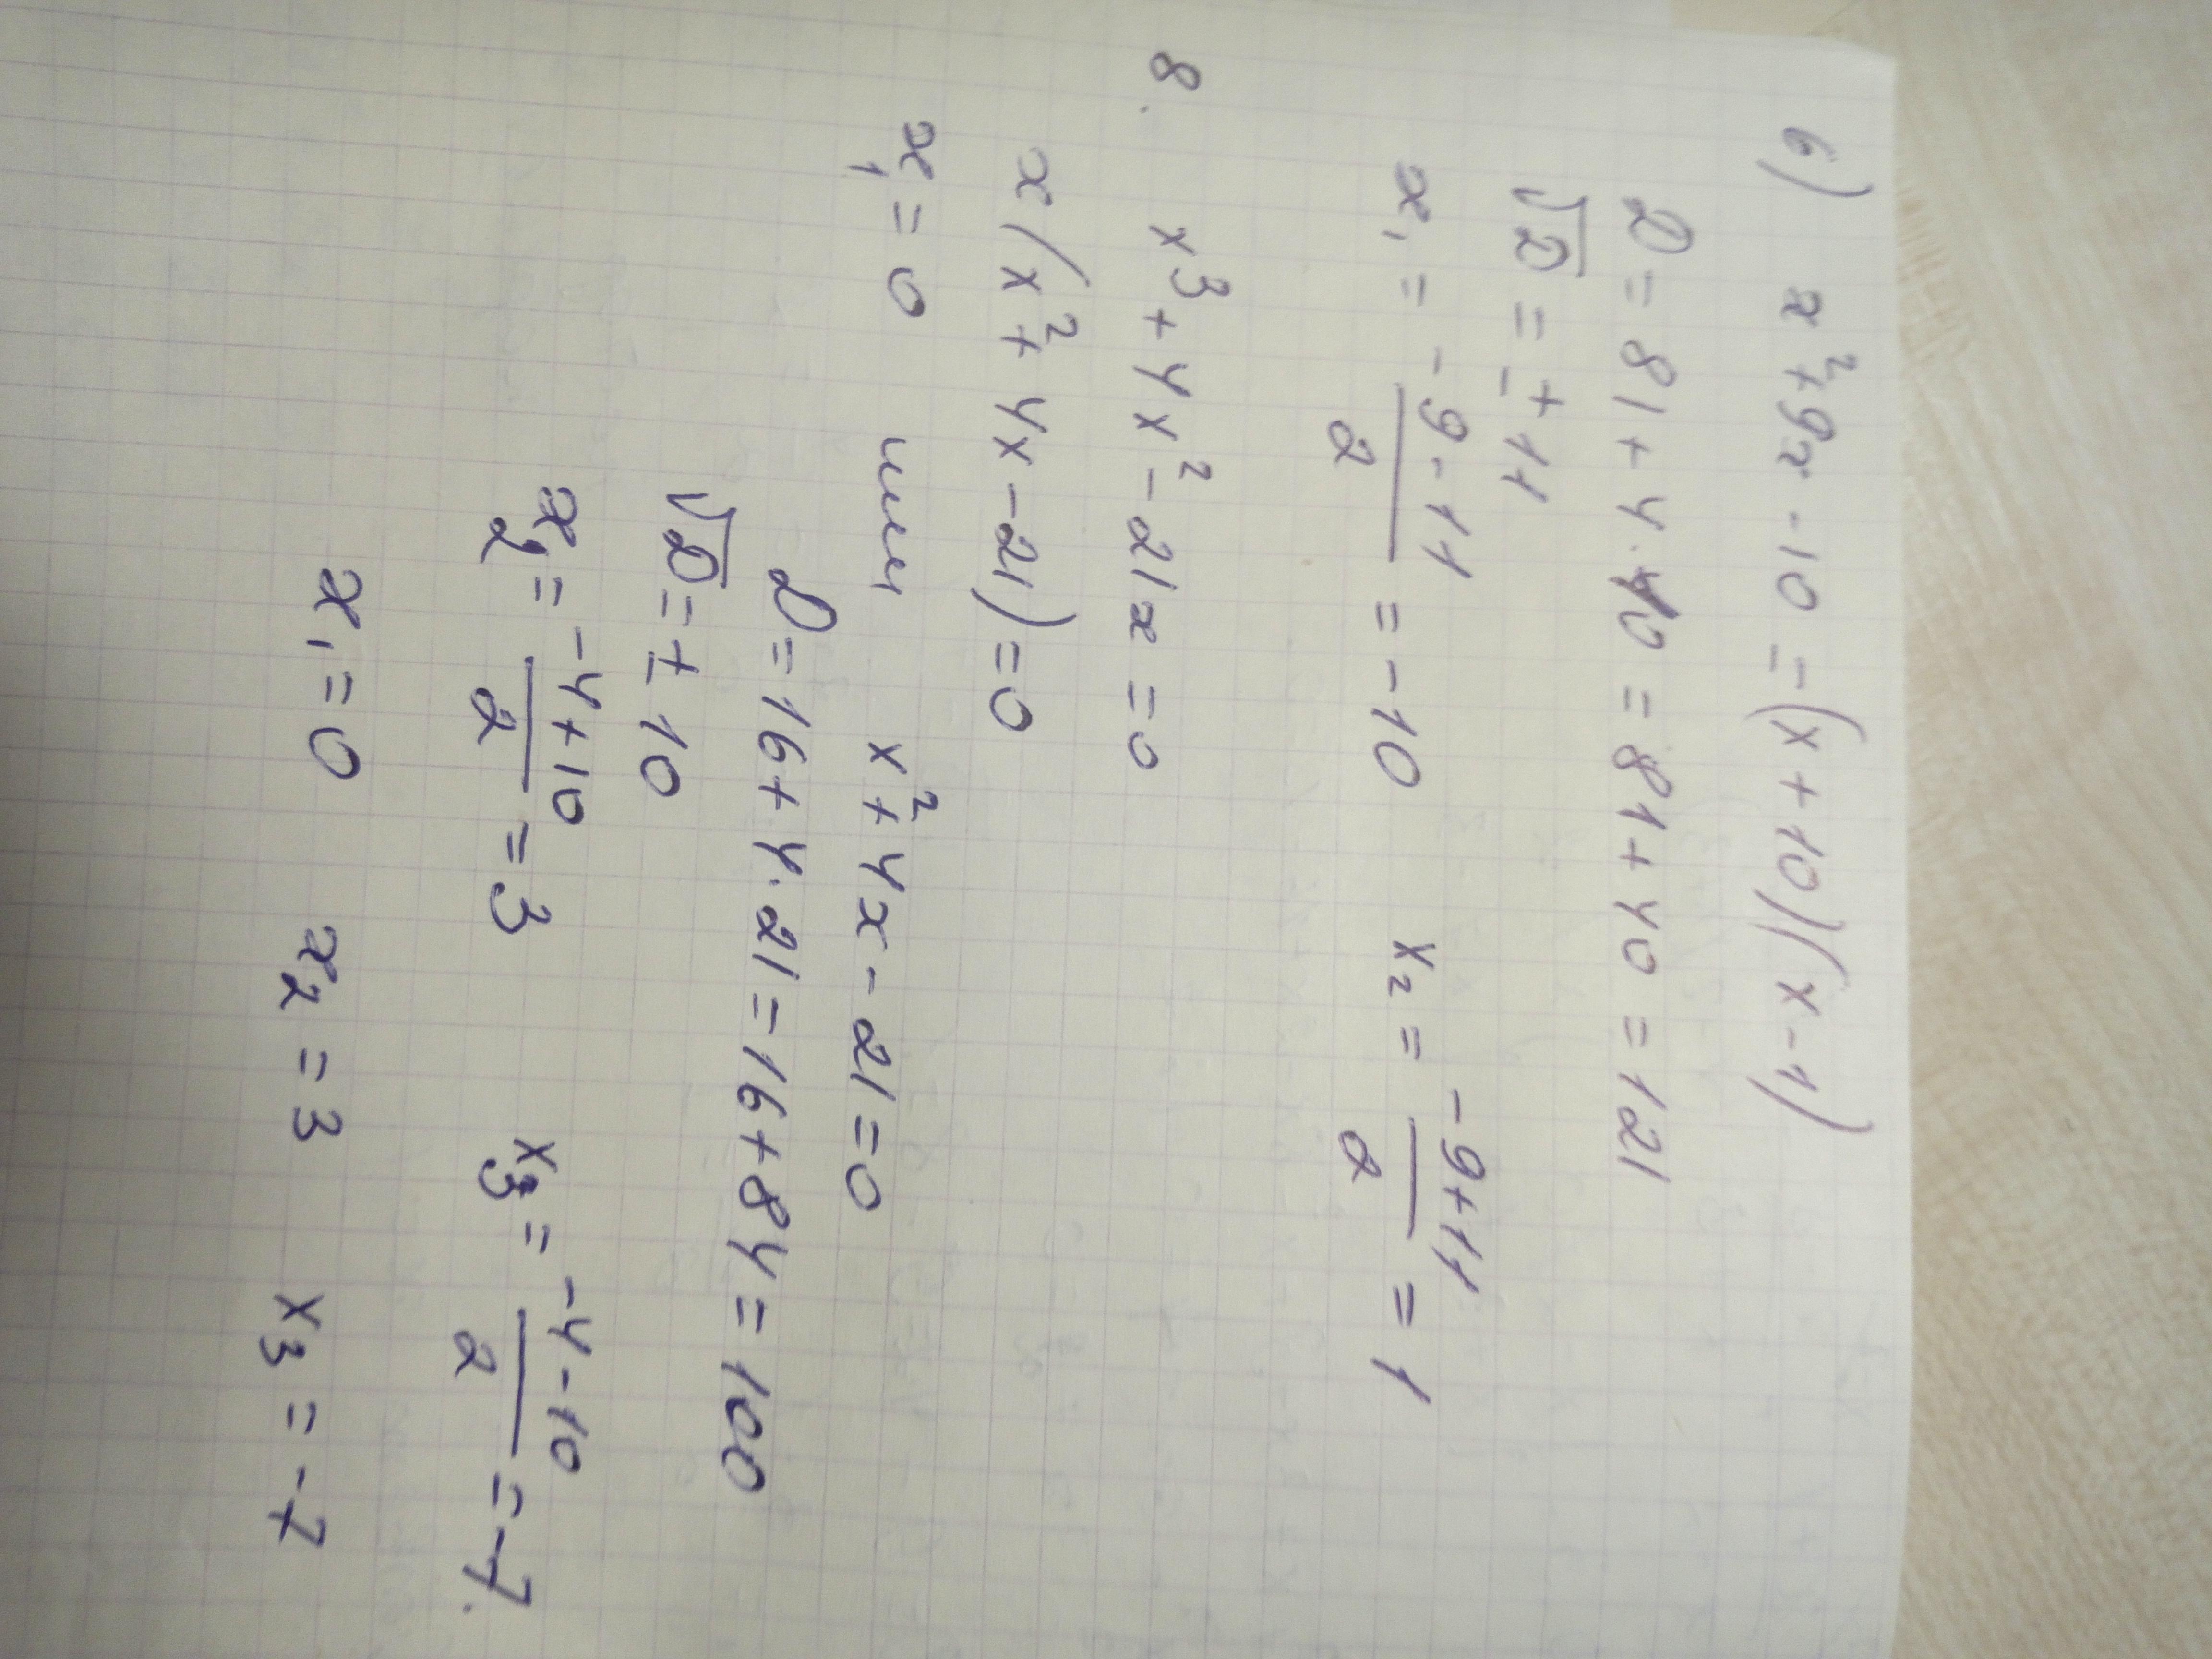 б) x² + 9x - 10 = (x + 10)(x - 1)
D = 81 + 4 · 10 = 81 + 40 = 121
√D = ± 11
x₁ = (-9 - 11)/2 = -10 x₂ = (-9 + 11)/2 = 1
8. x³ + 4x² - 21x = 0
x(x² + 4x - 21) = 0
x₁ = 0 или x² + 4x - 21 = 0
D = 16 + 4 · 21 = 16 + 84 = 100
√D = ± 10
x₂ = (-4 + 10)/2 = 3 x₃ = (-4 - 10)/2 = -7.
x₁ = 0 x₂ = 3 x₃ = -7